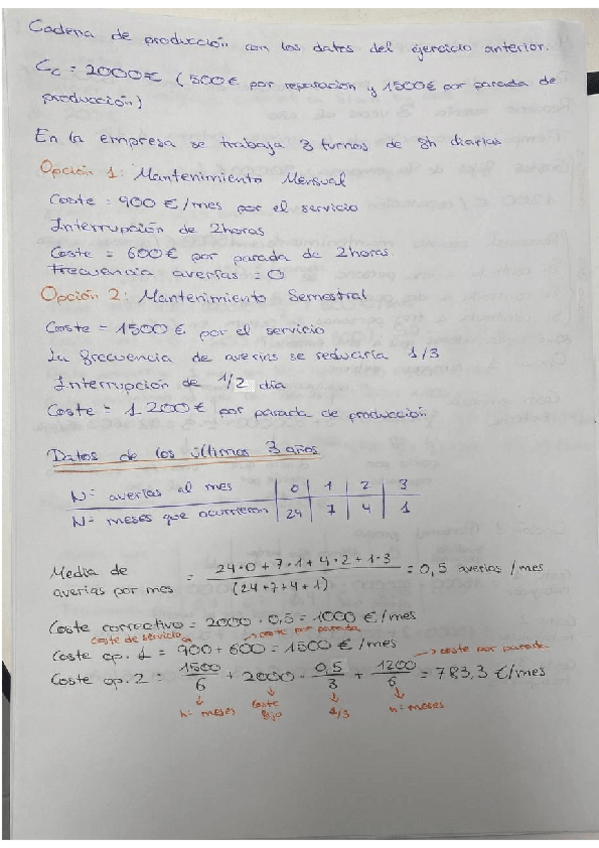 Cadena de producción con los datos del ejercicio anterior.
Cc = 2000€ (500€ por reparación y 1500€ por parada de
producción)
En la empresa se trabaja 3 turnos de 8h diarias
Opción 1: Mantenimiento Mensual
Coste = 900 €/mes por el servicio
Interrupción de 2horas
Coste = 600€ por parada de 2horas.
Frecuencia averías = 0
Opción 2: Mantenimiento Semestral
Coste = 1500€ por el servicio
La frecuencia de averias se reduciría 1/3
Interrupción de 1/2 día
Coste = 1200€ por parada de producción
Datos de los últimos 3 años
Nº averías al mes | 0 | 1 | 2 | 3
Nº meses que ocurrieron | 24 | 7 | 4 | 1
Media de averias por mes = (24·0 + 7·1 + 4·2 + 1·3) / (24+7+4+1) = 0,5 averias /mes
Coste correctivo = 2000 · 0,5 = 1000 €/mes
Coste de servicio → coste por parada
Coste op. 1 = 900 + 600 = 1500 €/mes → coste por parada
Coste op. 2 = 1500/6 + 2000 · 0,5/3 + 1200/6 = 783,3 €/mes
nº meses coste fijo 1/3 nº meses